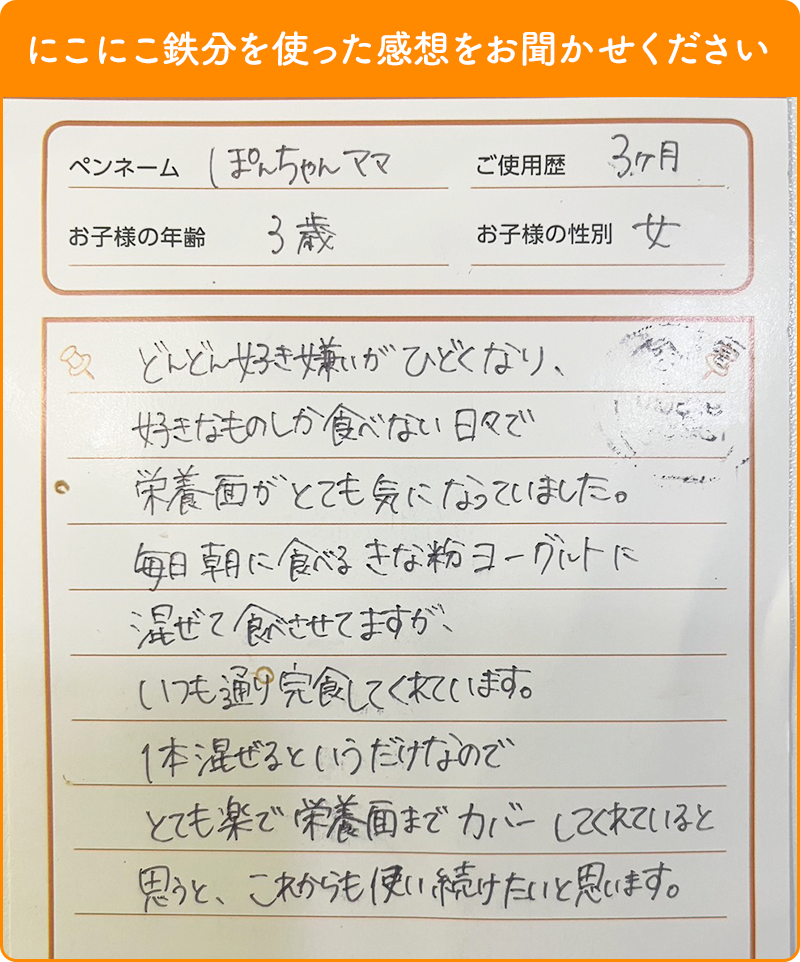 にこにこ鉄分を使った感想をお聞かせください
ペンネーム ぽんちゃんママ ご使用歴 3ヶ月
お子様の年齢 3歳 お子様の性別 女
どんどん好き嫌いがひどくなり、
好きなものしか食べない日々で
栄養面がとても気になっていました。
毎日朝に食べるきな粉ヨーグルトに
混ぜて食べさせてますが、
いつも通り完食してくれています。
1本混ぜるというだけなので
とても楽で栄養面までカバーしてくれていると
思うと、これからも使い続けたいと思います。